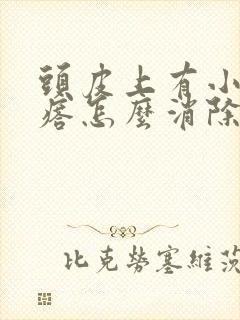 頭皮上有小
痞怎麼消除
比克勞塞維茨